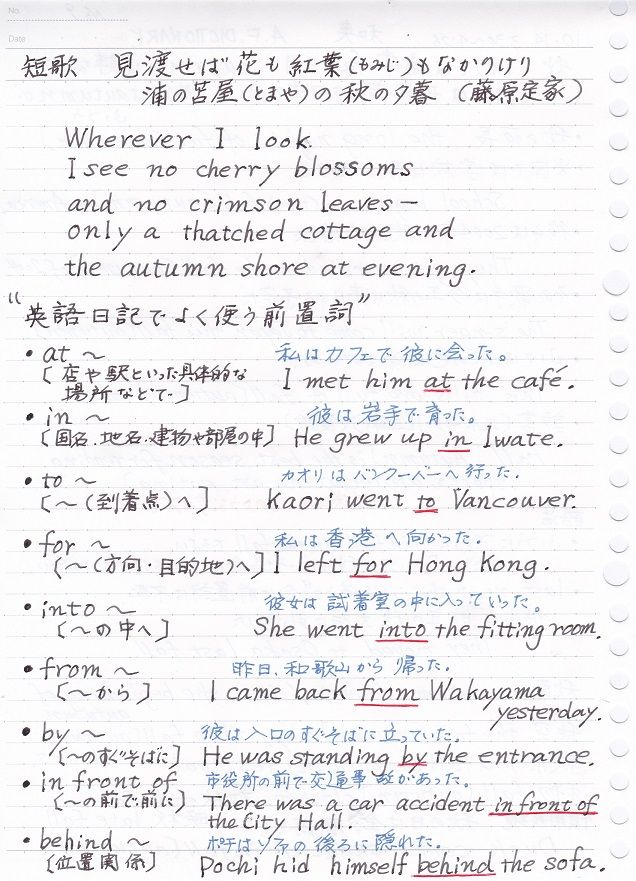 No.
Date
短歌　見渡せば花も紅葉(もみじ)もなかりけり
浦の苫屋(とまや)の秋の夕暮　(藤原定家)
Wherever I look.
I see no cherry blossoms
and no crimson leaves—
only a thatched cottage and
the autumn shore at evening.
"英語日記でよく使う前置詞"
・at ～　私はカフェで彼に会った。
[店や駅といった具体的な　I met him at the café.
場所などで]
・in ～　彼は岩手で育った。
[国名、地名、建物や部屋の中]　He grew up in Iwate.
・to ～　カオリはバンクーバーへ行った.
[～(到着点)へ]　Kaori went to Vancouver.
・for ～　私は香港へ向かった.
[～(方向・目的地)へ]　I left for Hong Kong.
・into ～　彼女は試着室の中に入っていった。
[～の中へ]　She went into the fitting room.
・from ～　昨日、和歌山から帰った。
[～から]　I came back from Wakayama
yesterday.
・by ～　彼は入口のすぐそばに立っていた。
[～のすぐそばに]　He was standing by the entrance.
・in front of　市役所の前で交通事故があった。
[～の前で,前に]　There was a car accident in front of
the City Hall.
・behind ～　ポチはソファの後ろに隠れた。
[位置関係]　Pochi hid himself behind the sofa.